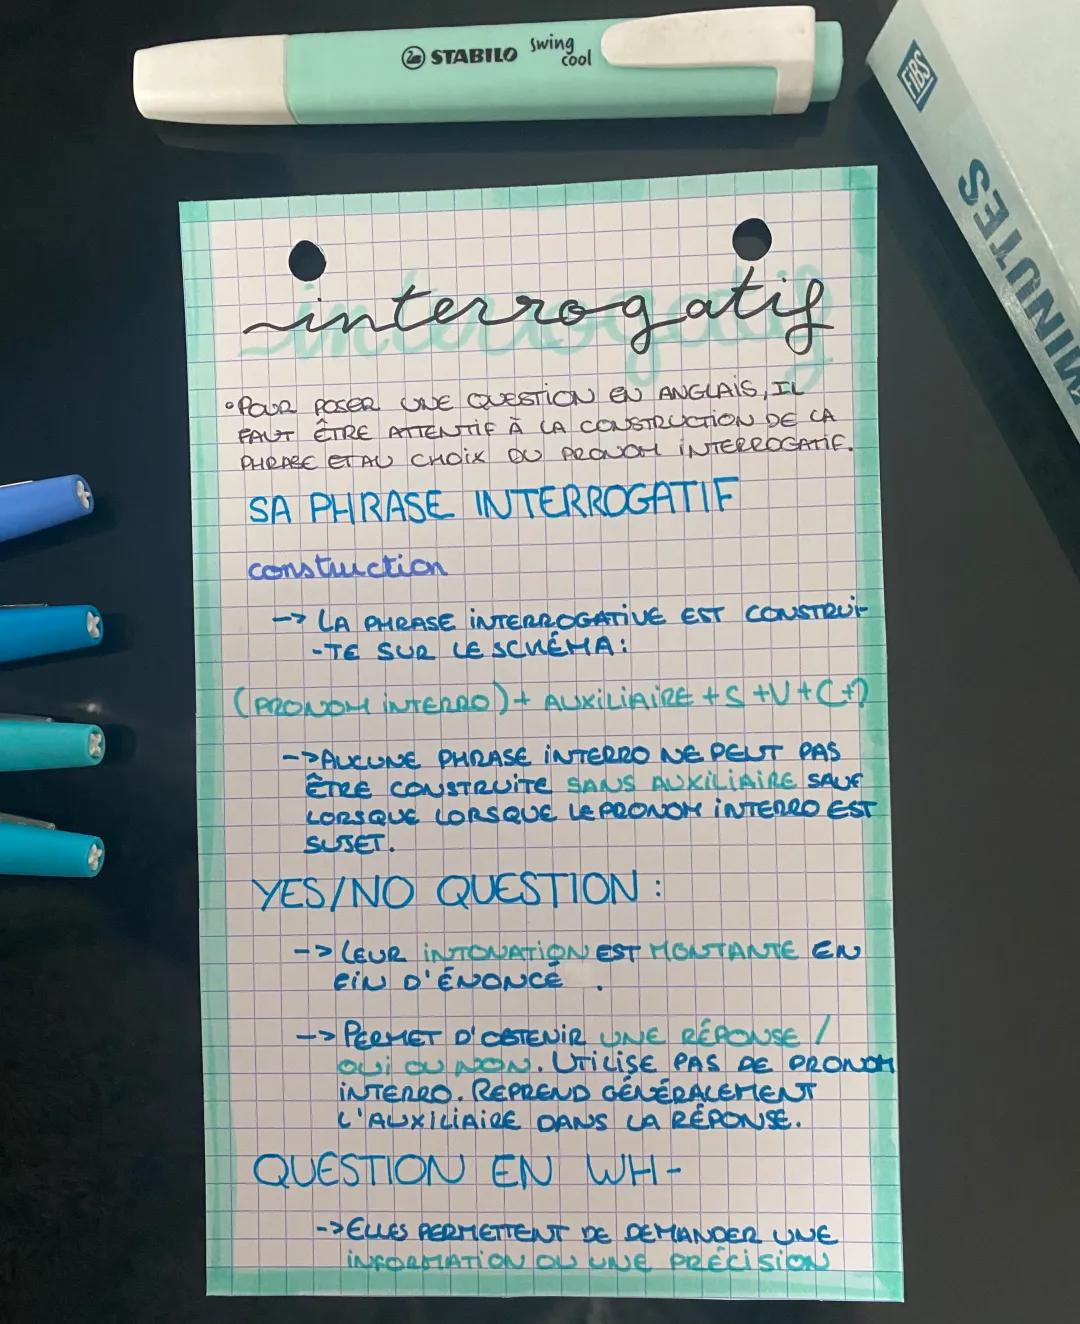 STABILO swing cool
FIBS
MINUTES
interrogatif
• POUR POSER UNE QUESTION EN ANGLAIS, IL
FAUT ÊTRE ATTENTIF À LA CONSTRUCTION DE LA
PHRASE ET AU CHOIX DU PRONOM INTERROGATIF.
SA PHRASE INTERROGATIF
construction
-> LA PHRASE INTERROGATIVE EST CONSTRUI-
-TE SUR LE SCHÉMA:
(PRONOM INTERRO) + AUXILIAIRE + S + V + C + ?
-> AUCUNE PHRASE INTERRO NE PEUT PAS
ÊTRE CONSTRUITE SANS AUXILIAIRE SAUF
LORSQUE LORSQUE LE PRONOM INTERRO EST
SUJET.
YES/NO QUESTION :
-> LEUR INTONATION EST MONTANTE EN
FIN D'ÉNONCÉ .
-> PERMET D'OBTENIR UNE RÉPONSE /
OUI OU NON. UTILISE PAS DE PRONOM
INTERRO. REPREND GÉNÉRALEMENT
L'AUXILIAIRE DANS LA RÉPONSE.
QUESTION EN WH-
-> ELLES PERMETTENT DE DEMANDER UNE
INFORMATION OU UNE PRÉCISION